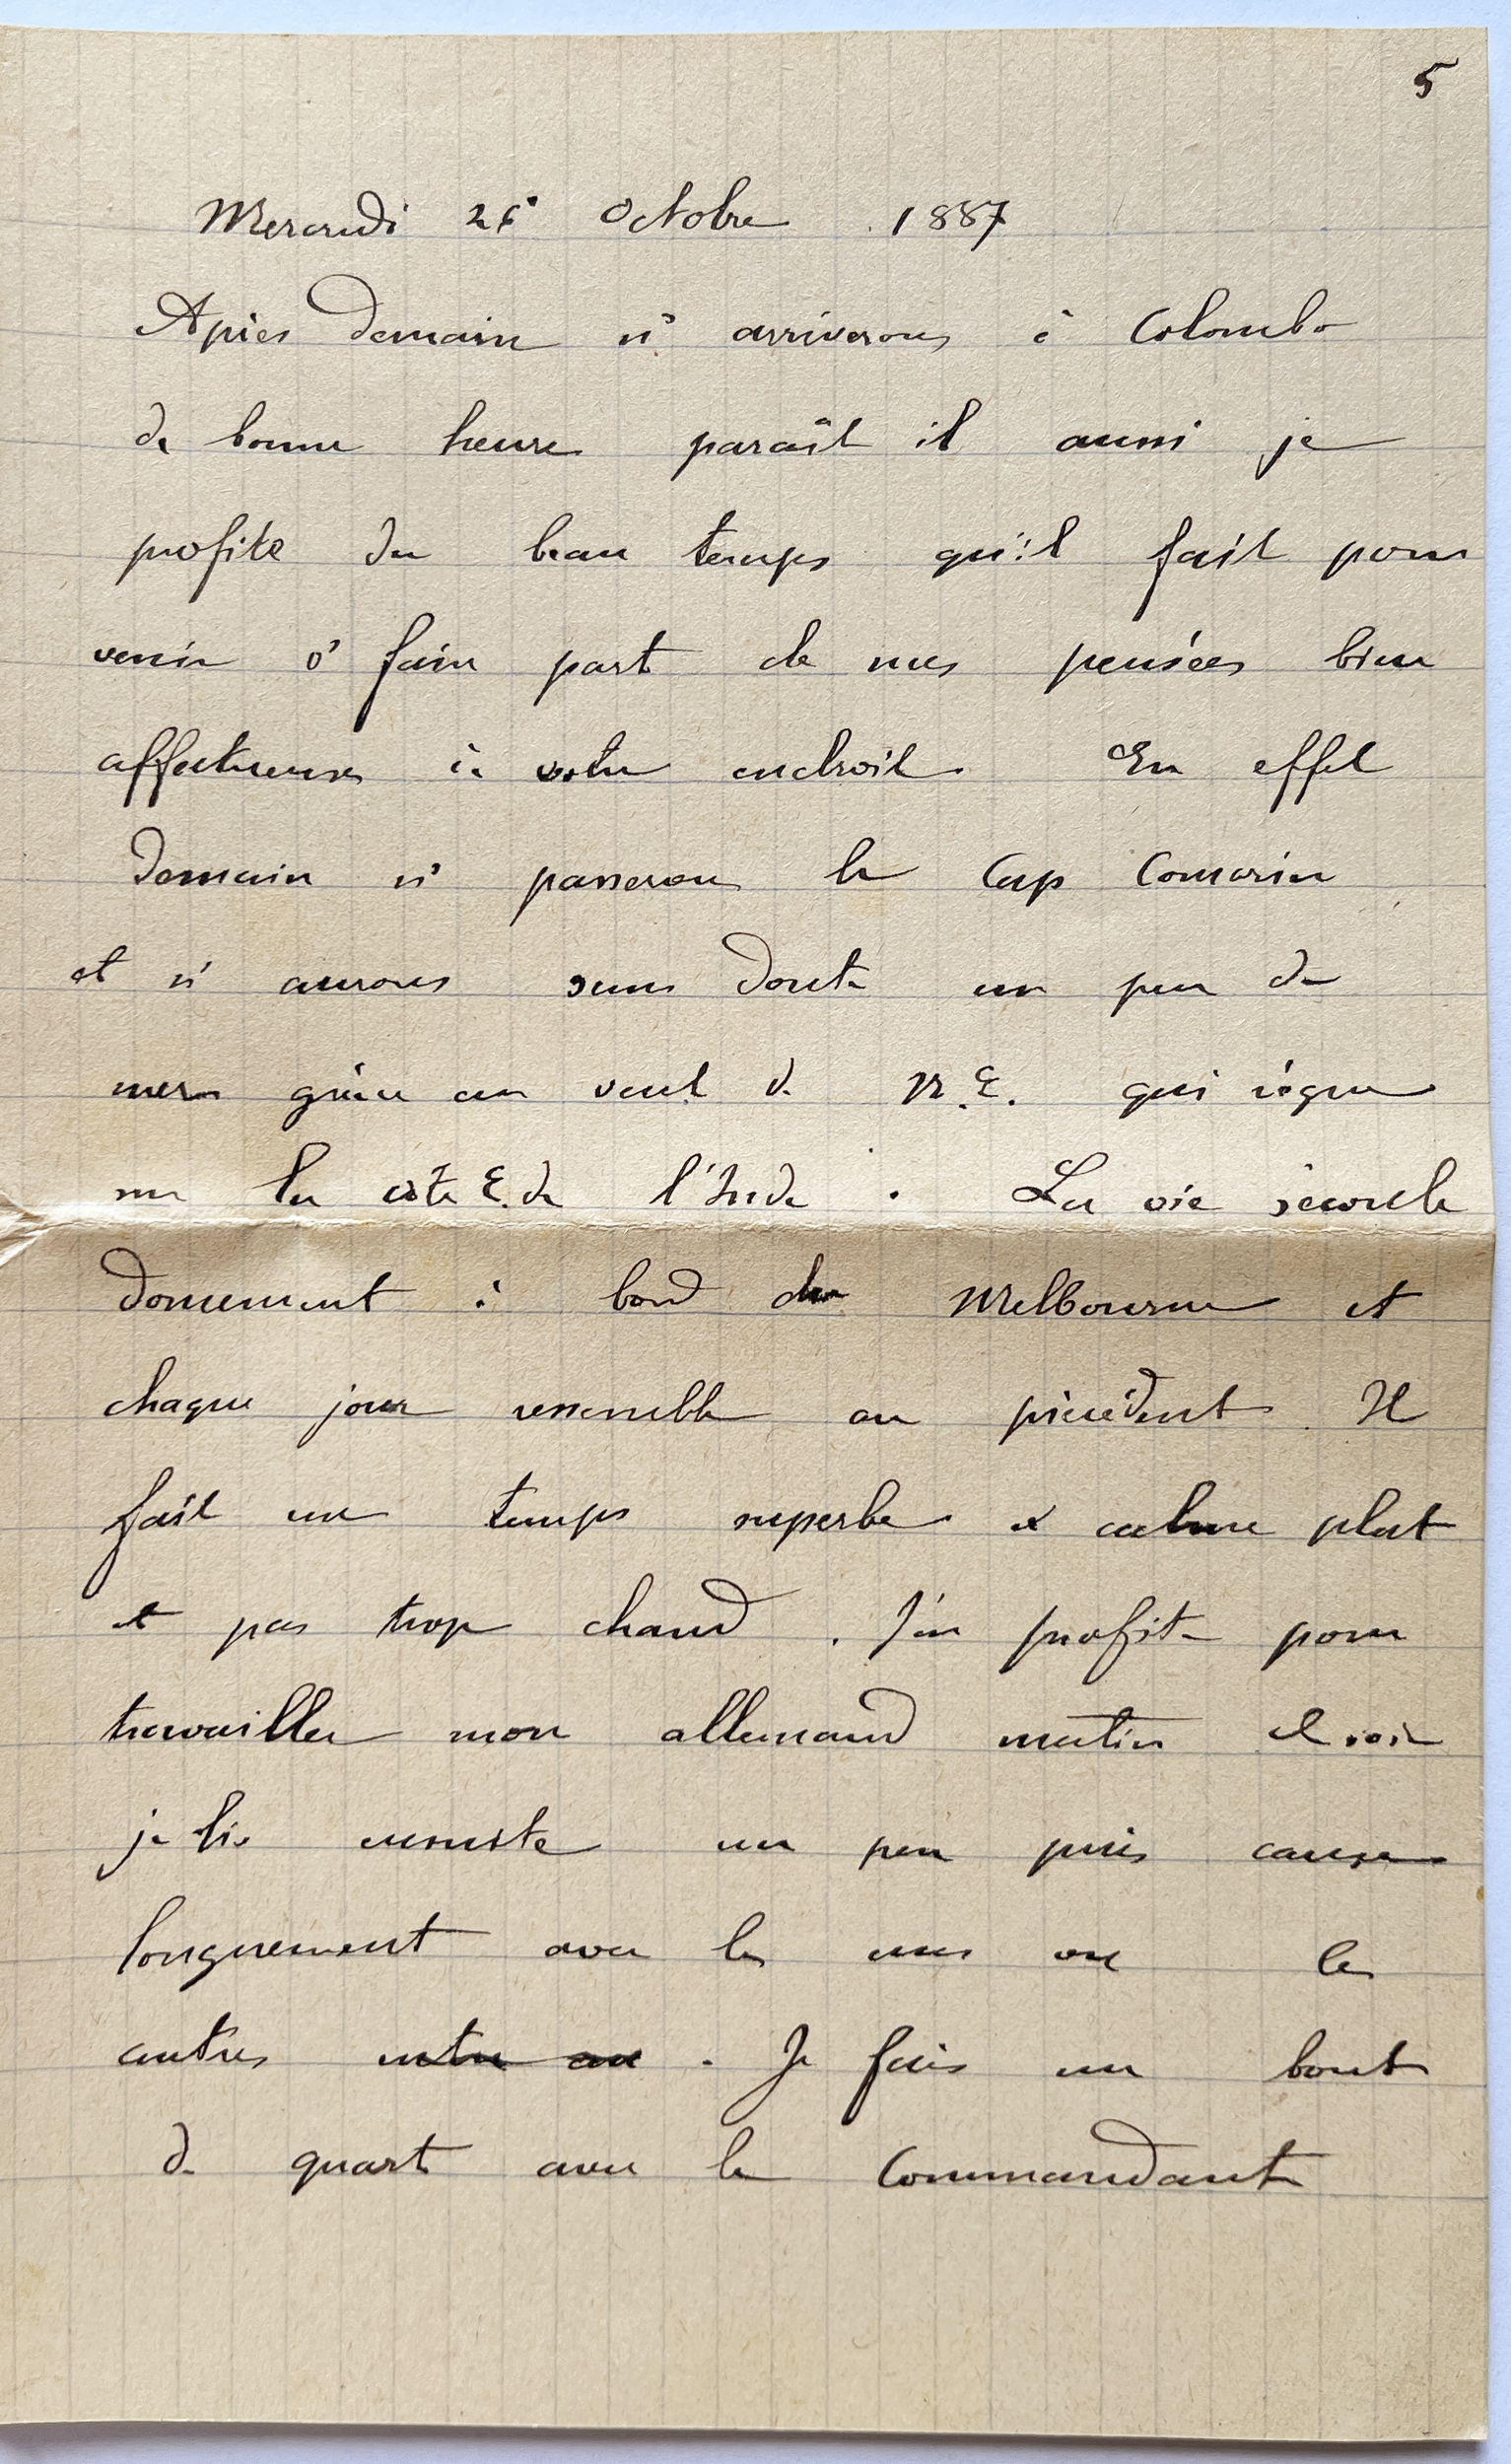 5
Mercredi 26 Octobre 1887
Après demain n' arriverons à Colombo
de bonne heure paraît il aussi je
profite du beau temps qu'il fait pour
venir v' faire part de mes pensées bien
affectueuses à votre endroit. En effet
demain n' passerons le Cap Comorin
et n' aurons sans doute un peu de
mer grâce au vent d. N.E. qui règne
sur la côte E. de l'Inde. La vie s'écoule
doucement à bord du Melbourne et
chaque jour ressemble au précédent. Il
fait un temps superbe calme plat
et pas trop chaud. J'en profite pour
travailler mon allemand matin et soir
je lis ensuite un peu puis cause
longuement avec les uns ou les
autres. Je fais un bout
de quart avec le Commandant